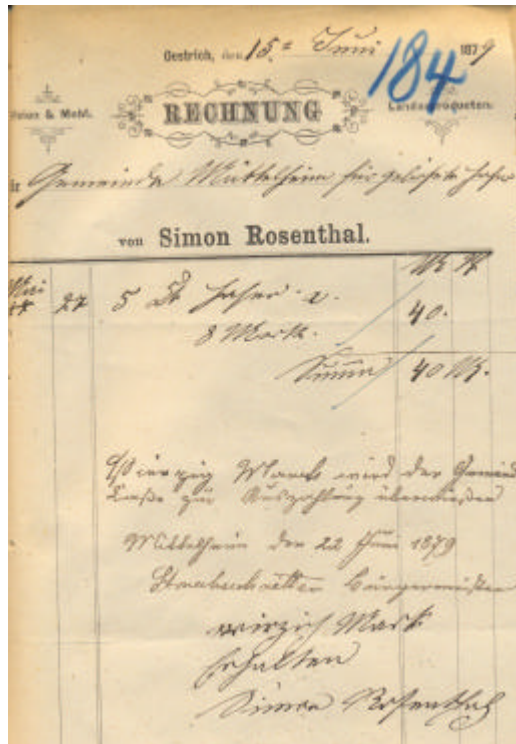 Oestrich, den 15. Juni 1879
184
& Mehl. Landesprodukten.
RECHNUNG
Gemeinde Mittelheim für gelieferte Hafer
von Simon Rosenthal.
Mk
Mai 27 5 Hafer 40.
8 Mark.
Summa 40 Mk.
Vierzig Mark wird der Gemeinde
Kasse zur Auszahlung überwiesen
Mittelheim den 22 Juni 1879
Bürgermeister
virzich Mark
Erhalten
Simon Rosenthal